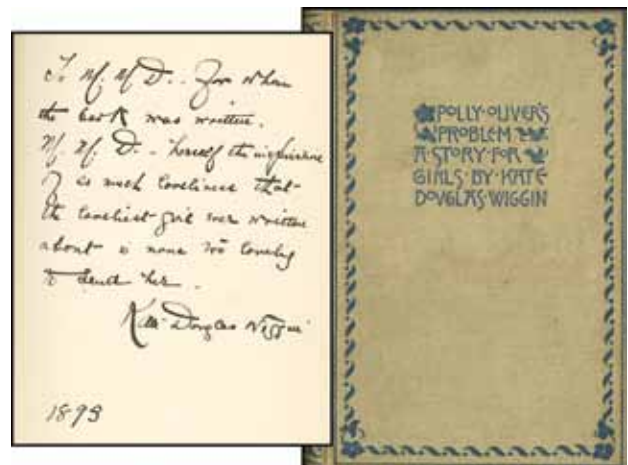 To N. N. D. . For whom
the book was written.
N. N. D. - herself the inspiration
of so much loveliness that
the loveliest girl ever written
about is none too lovely
to send her.
Kate Douglas Wiggin
1893
POLLY·OLIVER'S
PROBLEM
A·STORY·FOR
GIRLS·BY·KATE
DOVGLAS·WIGGIN